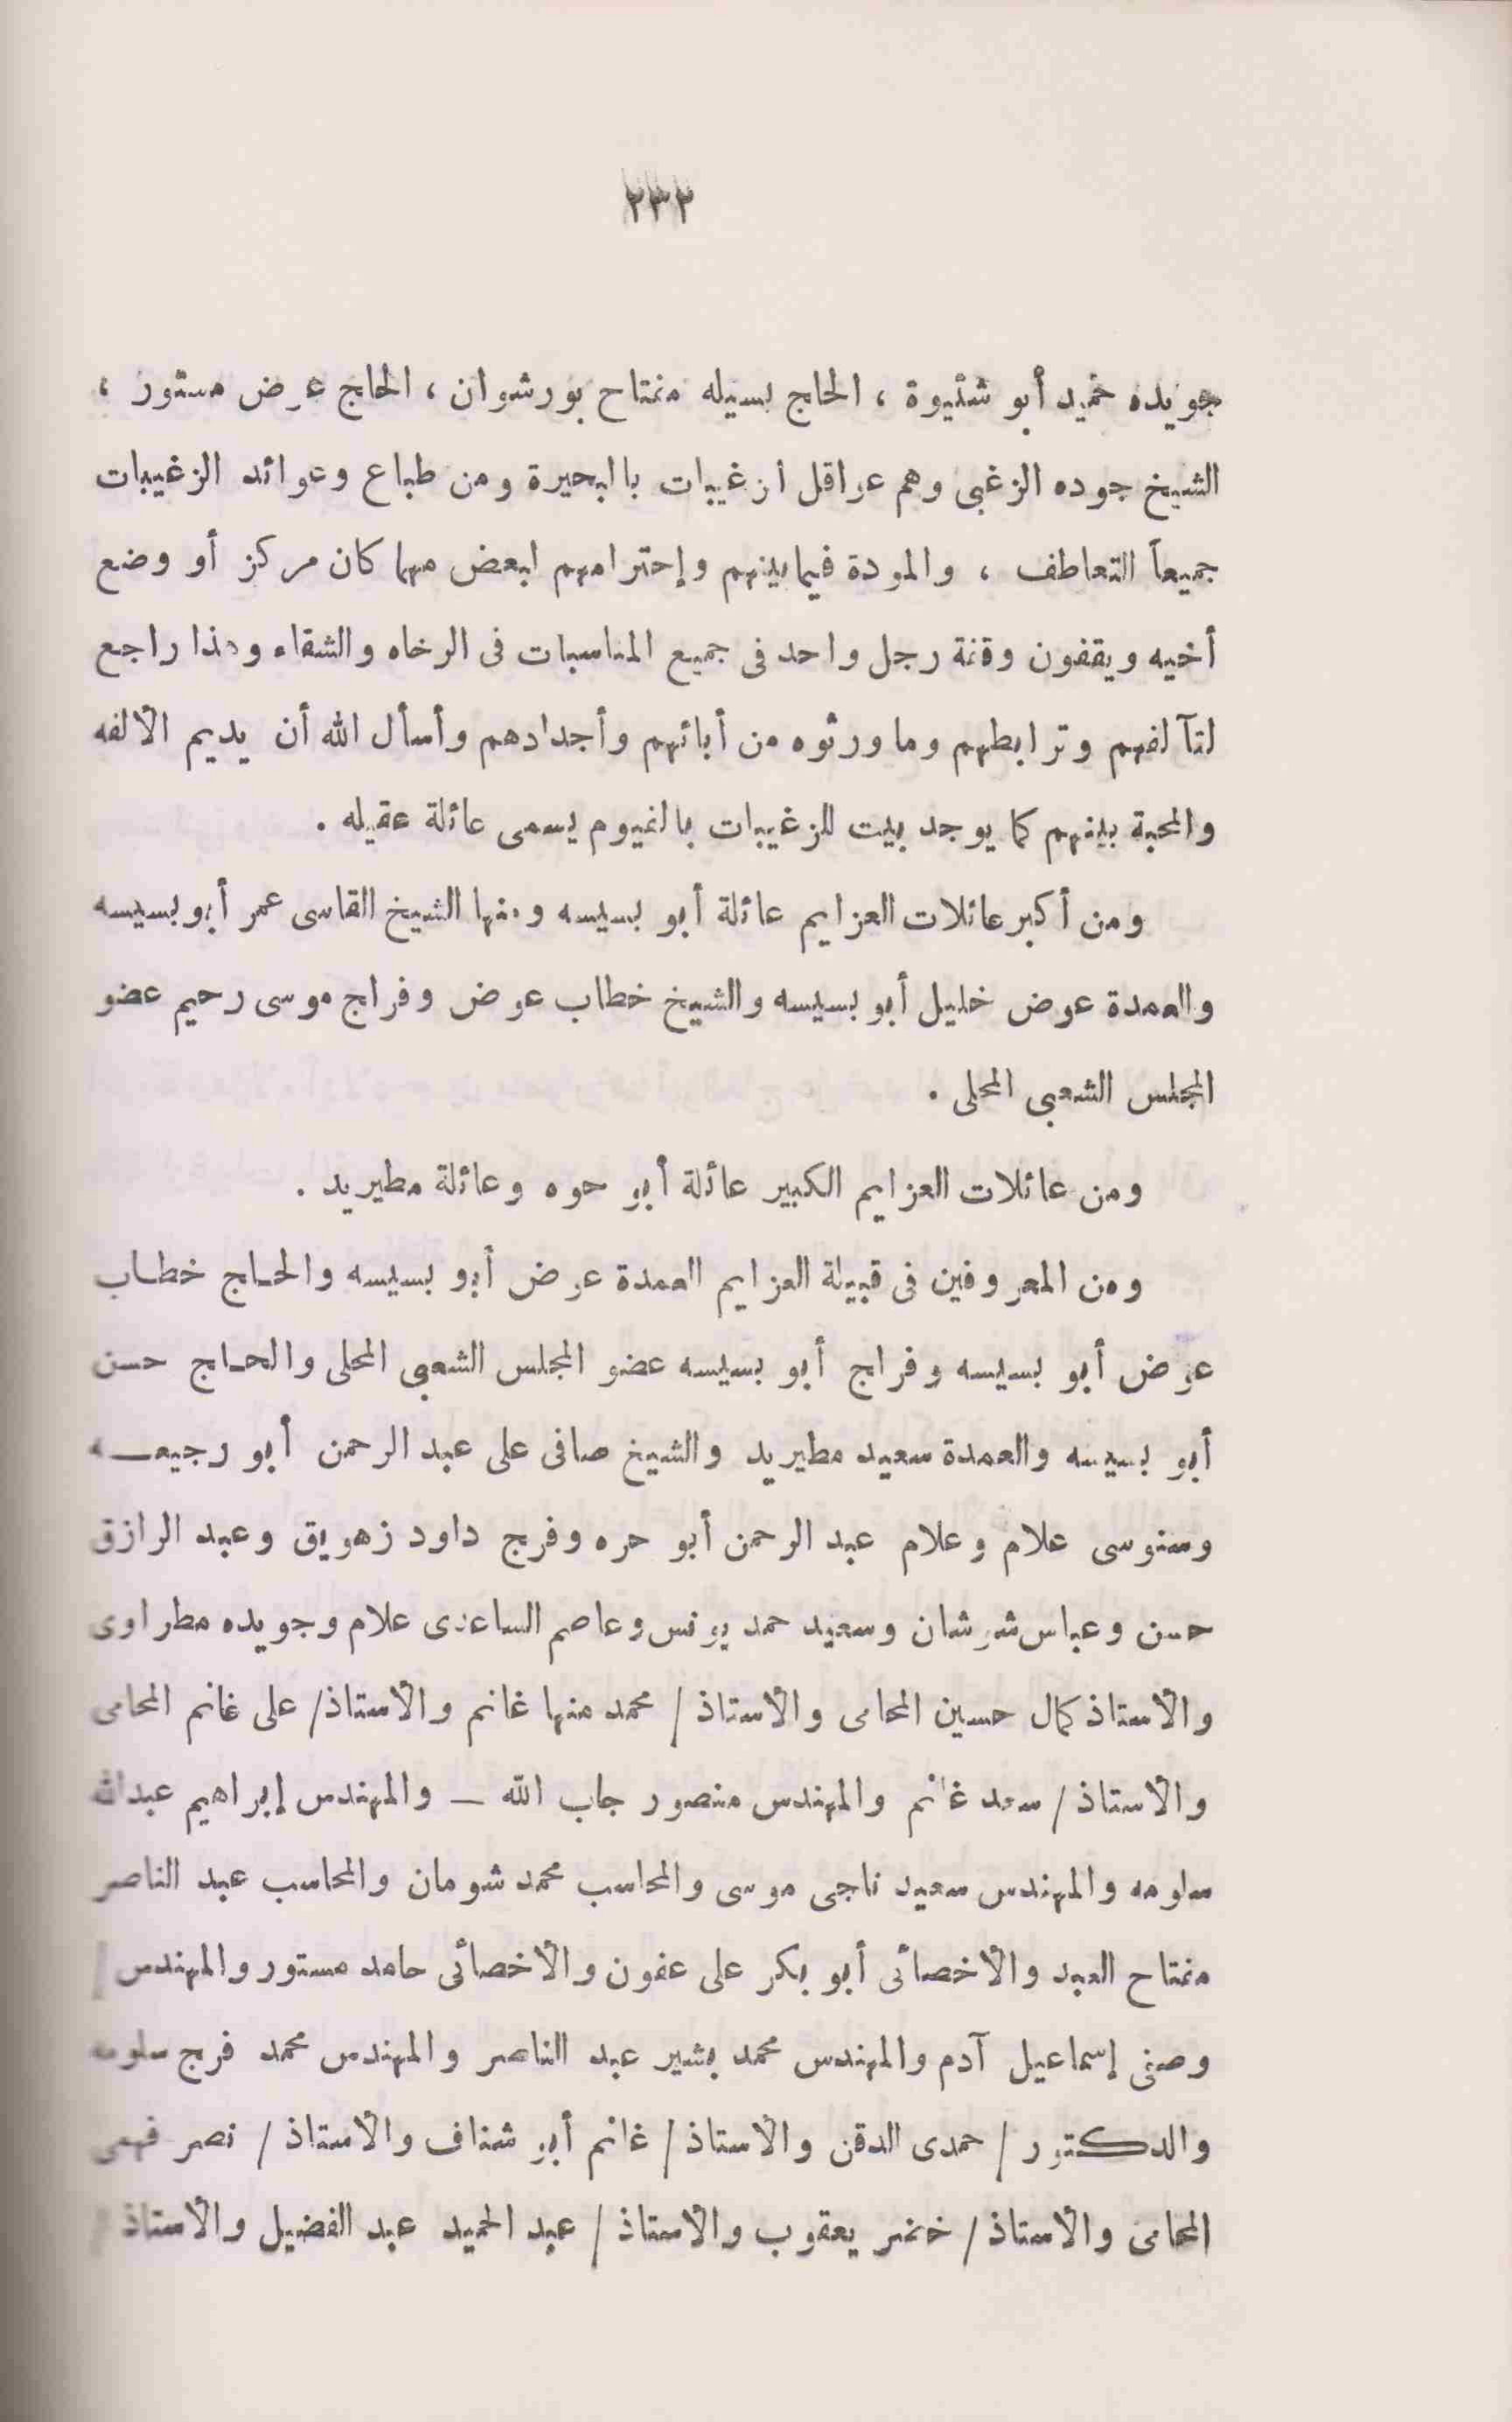 ٢٣٢
جويده حميد أبو شتيوة ، الحاج بسيله مفتاح بورشوان ، الحاج عوض مستور ،
الشيخ جوده الزغبى وهم عواقل الزغيبات بالبحيرة ومن طباع وعوائد الزغيبات
جميعاً التعاطف ، والمودة فيما بينهم وإحترامهم لبعض مهما كان مركز أو وضع
أخيه ويقفون وقفة رجل واحد فى جميع المناسبات فى الرخاه والشقاء وهذا راجع
لتآلفهم وترابطهم وما ورثوه من أبائهم وأجدادهم وأسأل الله أن يديم الألفه
والمحبة بينهم كما يوجد بيت للزغيبات بالفيوم يسمى عائلة عقيله .
ومن أكبر عائلات العزايم عائلة أبو بسيسه ومنها الشيخ القاسى عمر أبو بسيسه
والعمدة عوض خليل أبو بسيسه والشيخ خطاب عوض وفراج موسى رحيم عضو
المجلس الشعبى المحلى .
ومن عائلات العزايم الكبير عائلة أبو حوه وعائلة مطيريد .
ومن المعروفين فى قبيلة العزايم العمدة عوض أبو بسيسه والحاج خطاب
عوض أبو بسيسه وفراج أبو بسيسه عضو المجلس الشعبى المحلى والحاج حسن
أبو بسيسه والعمدة سعيد مطيريد والشيخ صافى على عبد الرحمن أبو رجيعه
وسنوسى علام وعلام عبد الرحمن أبو حره وفرج داود زهويق وعبد الرازق
حسن وعباس شرشان وسعيد حمد يونس وعاصم الساعدى علام وجويده مطراوى
والأستاذ كمال حسين المحامى والأستاذ / محمد منها غانم والأستاذ / على غانم المحامى
والأستاذ / سعد غانم والمهندس منصور جاب الله – والمهندس إبراهيم عبدالله
سلومه والمهندس سعيد ناجى موسى والمحاسب محمد شومان والمحاسب عبد الناصر
مفتاح العبد والأخصائى أبو بكر على عفون والأخصائى حامد مستور والمهندس /
وصفى إسماعيل آدم والمهندس محمد بشير عبد الناصر والمهندس محمد فرج سلومه
والدكتور / حمدى الدقن والأستاذ / غانم أبو شناف والأستاذ / نصر فهمى
المحامى والأستاذ / يعقوب والأستاذ / عبد الحميد عبد الفضيل والأستاذ /